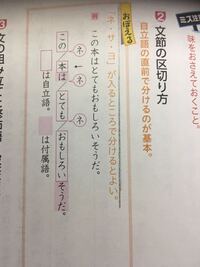 ミス注
味をおさえておくこと。
2 文節の区切り方
自立語の直前で分けるのが基本。
おぼえる
「ネ・サ・ヨ」が入るところで分けるとよい。
例 この本はとてもおもしろいそうだ。
ネ ネ ネ
この／本は／とても／おもしろいそうだ。
は自立語。 は付属語。
3 文の組み立て